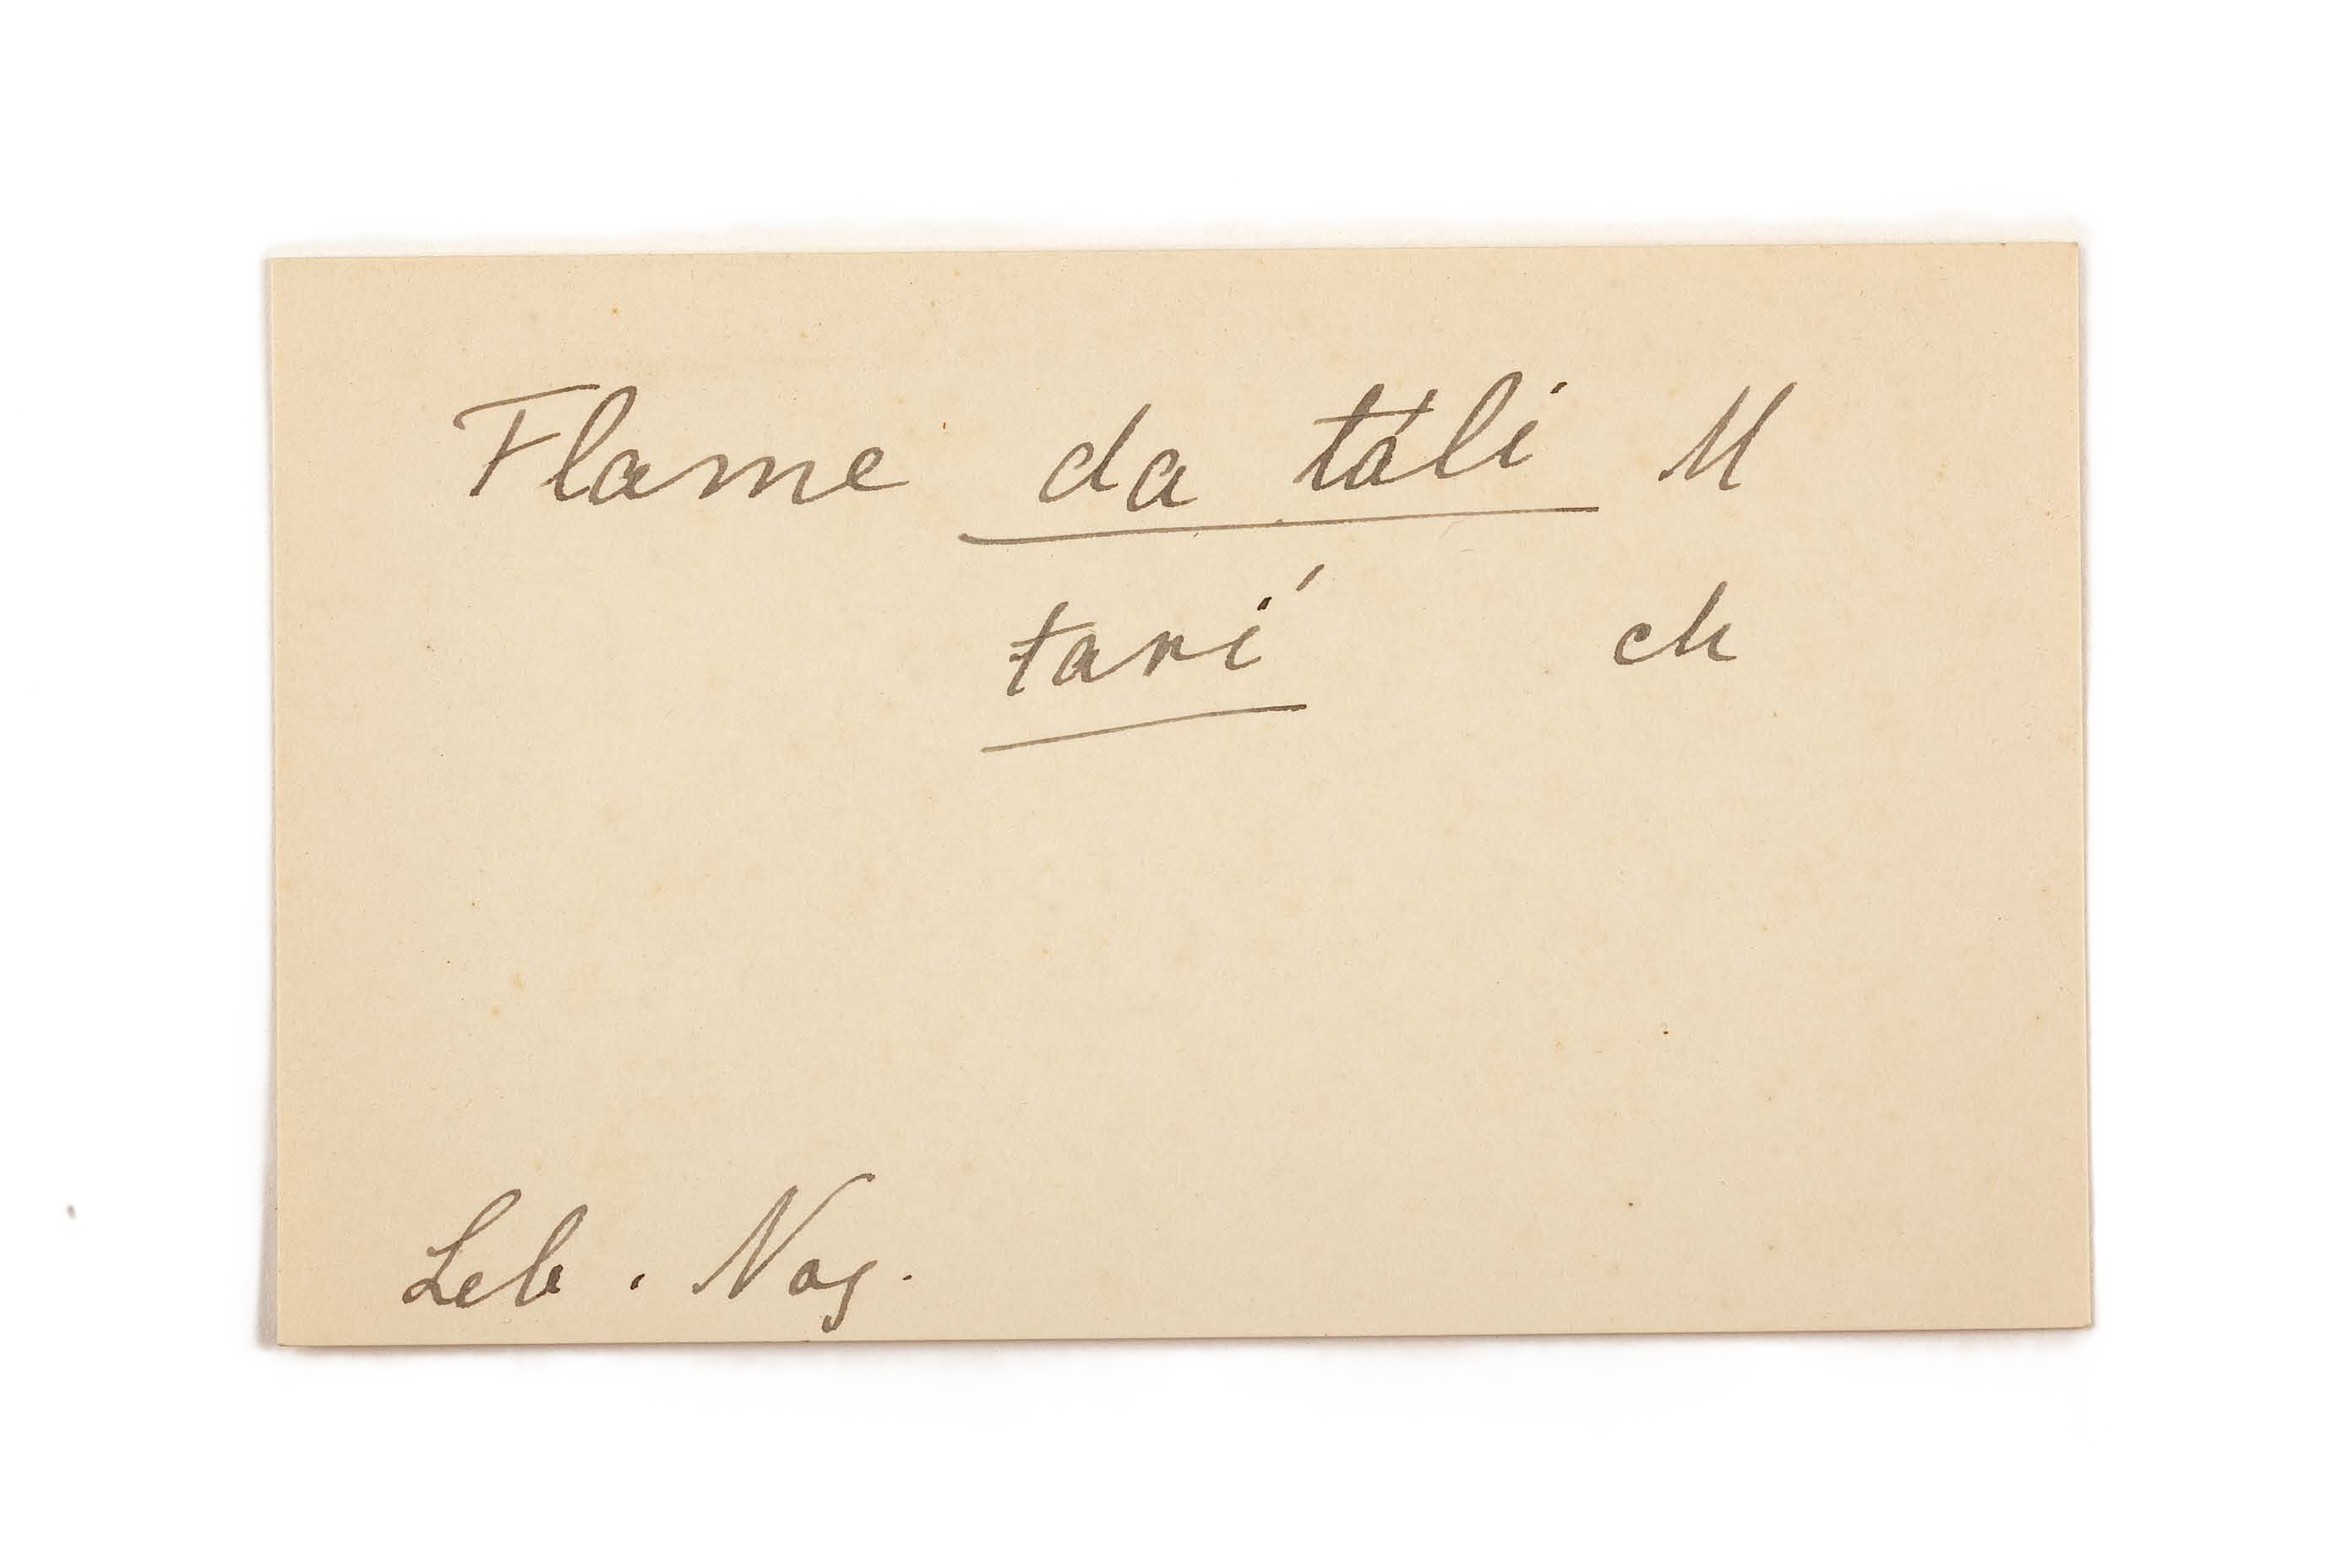 Flame da táli M
tarí ch
Leb. Nog.